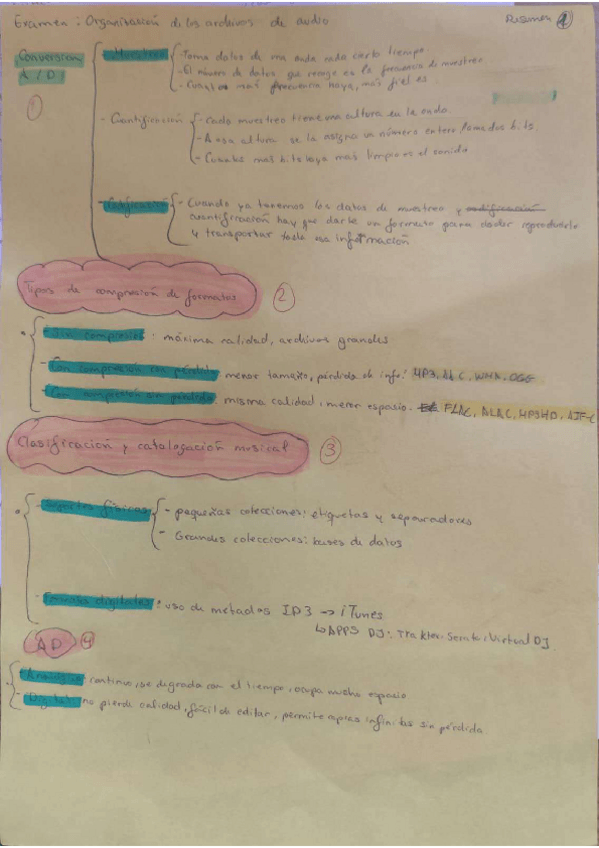 Examen: Organización de los archivos de audio
Resumen 1
Conversion A/D:
1
- Muestreo
- Toma datos de una onda cada cierto tiempo.
- El número de datos que recoge es la frecuencia de muestreo
- Cuanto más frecuencia haya, más fiel es.
- Cuantificación
- Cada muestreo tiene una altura en la onda.
- A esa altura se la asigna un número entero, llamados bits.
- Cuantos mas bits haya mas limpio es el sonido
- Codificación
- Cuando ya tenemos los datos de muestreo y codificación
cuantificación hay que darle un formato para poder reproducirlo
y transportar toda esa información
Tipos de compresión de formatos
2
- Sin compresión: máxima calidad, archivos grandes
- Con compresion con pérdida: menor tamaño, pérdida de info: MP3, AAC, WMA, OGG
- Con compresión sin pérdida: misma calidad, menor espacio. FLAC, ALAC, MP3HD, AIF-C
Clasificación y catalogación musical
3
- Soportes físicos
- pequeñas colecciones: etiquetas y separadores
- Grandes colecciones: bases de datos
- Formatos digitales: uso de metados ID3 → iTunes
↳ APPS DJ: Traktor, Serato, Virtual DJ
AD
4
- Analógico: continuo, se degrada con el tiempo, ocupa mucho espacio
- Digital: no pierde calidad, fácil de editar, permite copias infinitas sin pérdida.